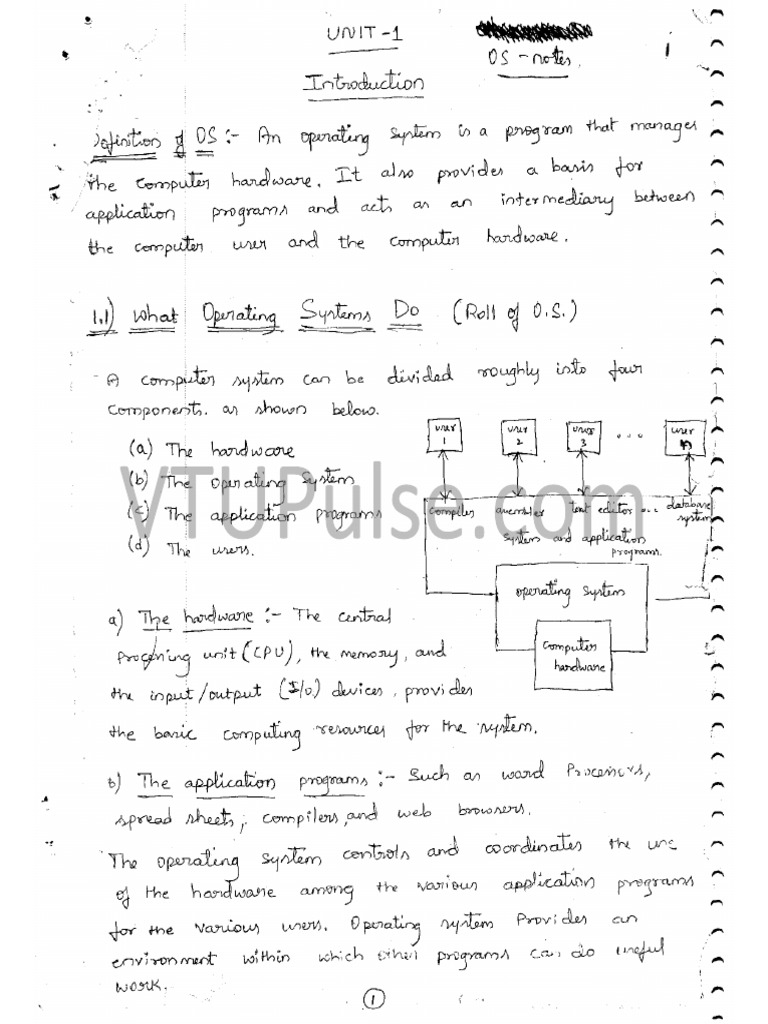 UNIT-1
OS - notes
i
Introduction
Definition of OS :- An operating system is a program that manages
the computer hardware. It also provides a basis for
application programs and acts as an intermediary between
the computer user and the computer hardware.
1.1) What Operating Systems Do (Roll of O.S.)
A computer system can be divided roughly into four
components. as shown below.
(a) The hardware
(b) The operating system
(c) The application programs
(d) The users.
user 1
user 2
user 3
...
user n
compiler assembler text editor ... database system
system and application
programs.
operating system
computer
hardware
VTUPulse.com
a) The hardware :- The central
processing unit (CPU), the memory, and
the input/output (I/O) devices, provides
the basic computing resources for the system.
b) The application programs :- Such as word Processors,
spread sheets, compilers, and web browsers.
The operating system controls and coordinates the use
of the hardware among the various application programs
for the various users. Operating system Provides an
environment within which other programs can do useful
work.
1